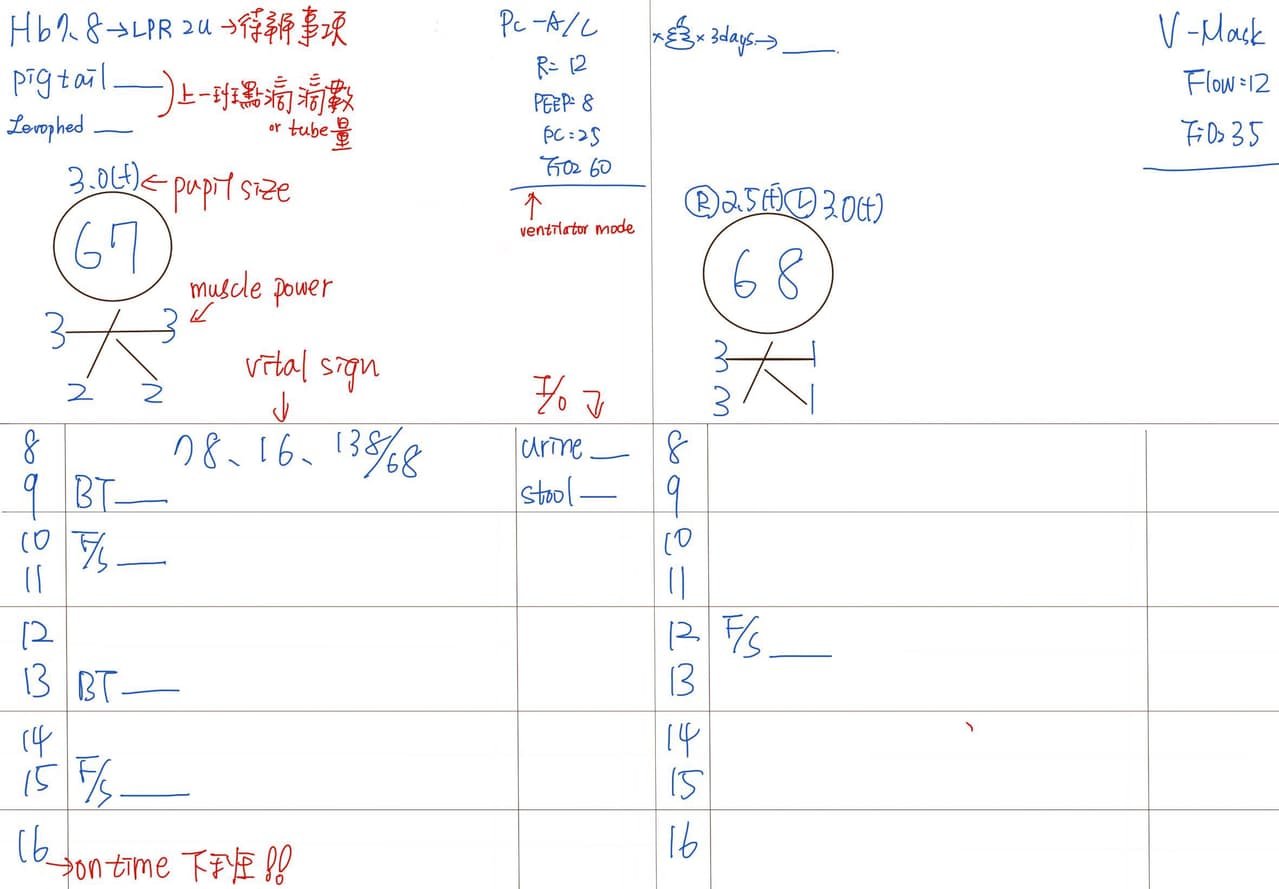 Hb7.8→LPR 2U→待辦事項
pigtail
Levophed
上一班點滴滴數
or tube量
3.0(+)←pupil size
67
muscle power
3 3
2 2
vital sign
I/O
PC-A/C
R=12
PEEP=8
PC=25
FiO2 60
ventilator mode
×3days→
V-Mask
Flow=12
FiO2 35
Ⓡ2.5(±)Ⓛ3.0(+)
68
3 1
3 1
8 78、16、138/68 urine
9 BT stool
10 F/S
11
12
13 BT
14
15 F/S
16→on time 下班!!
8
9
10
11
12 F/S
13
14
15
16